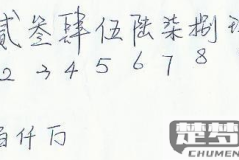 貳叁肆伍陆柒捌
2 3 4 5 6 7 8
佰仟万
CHUMEN